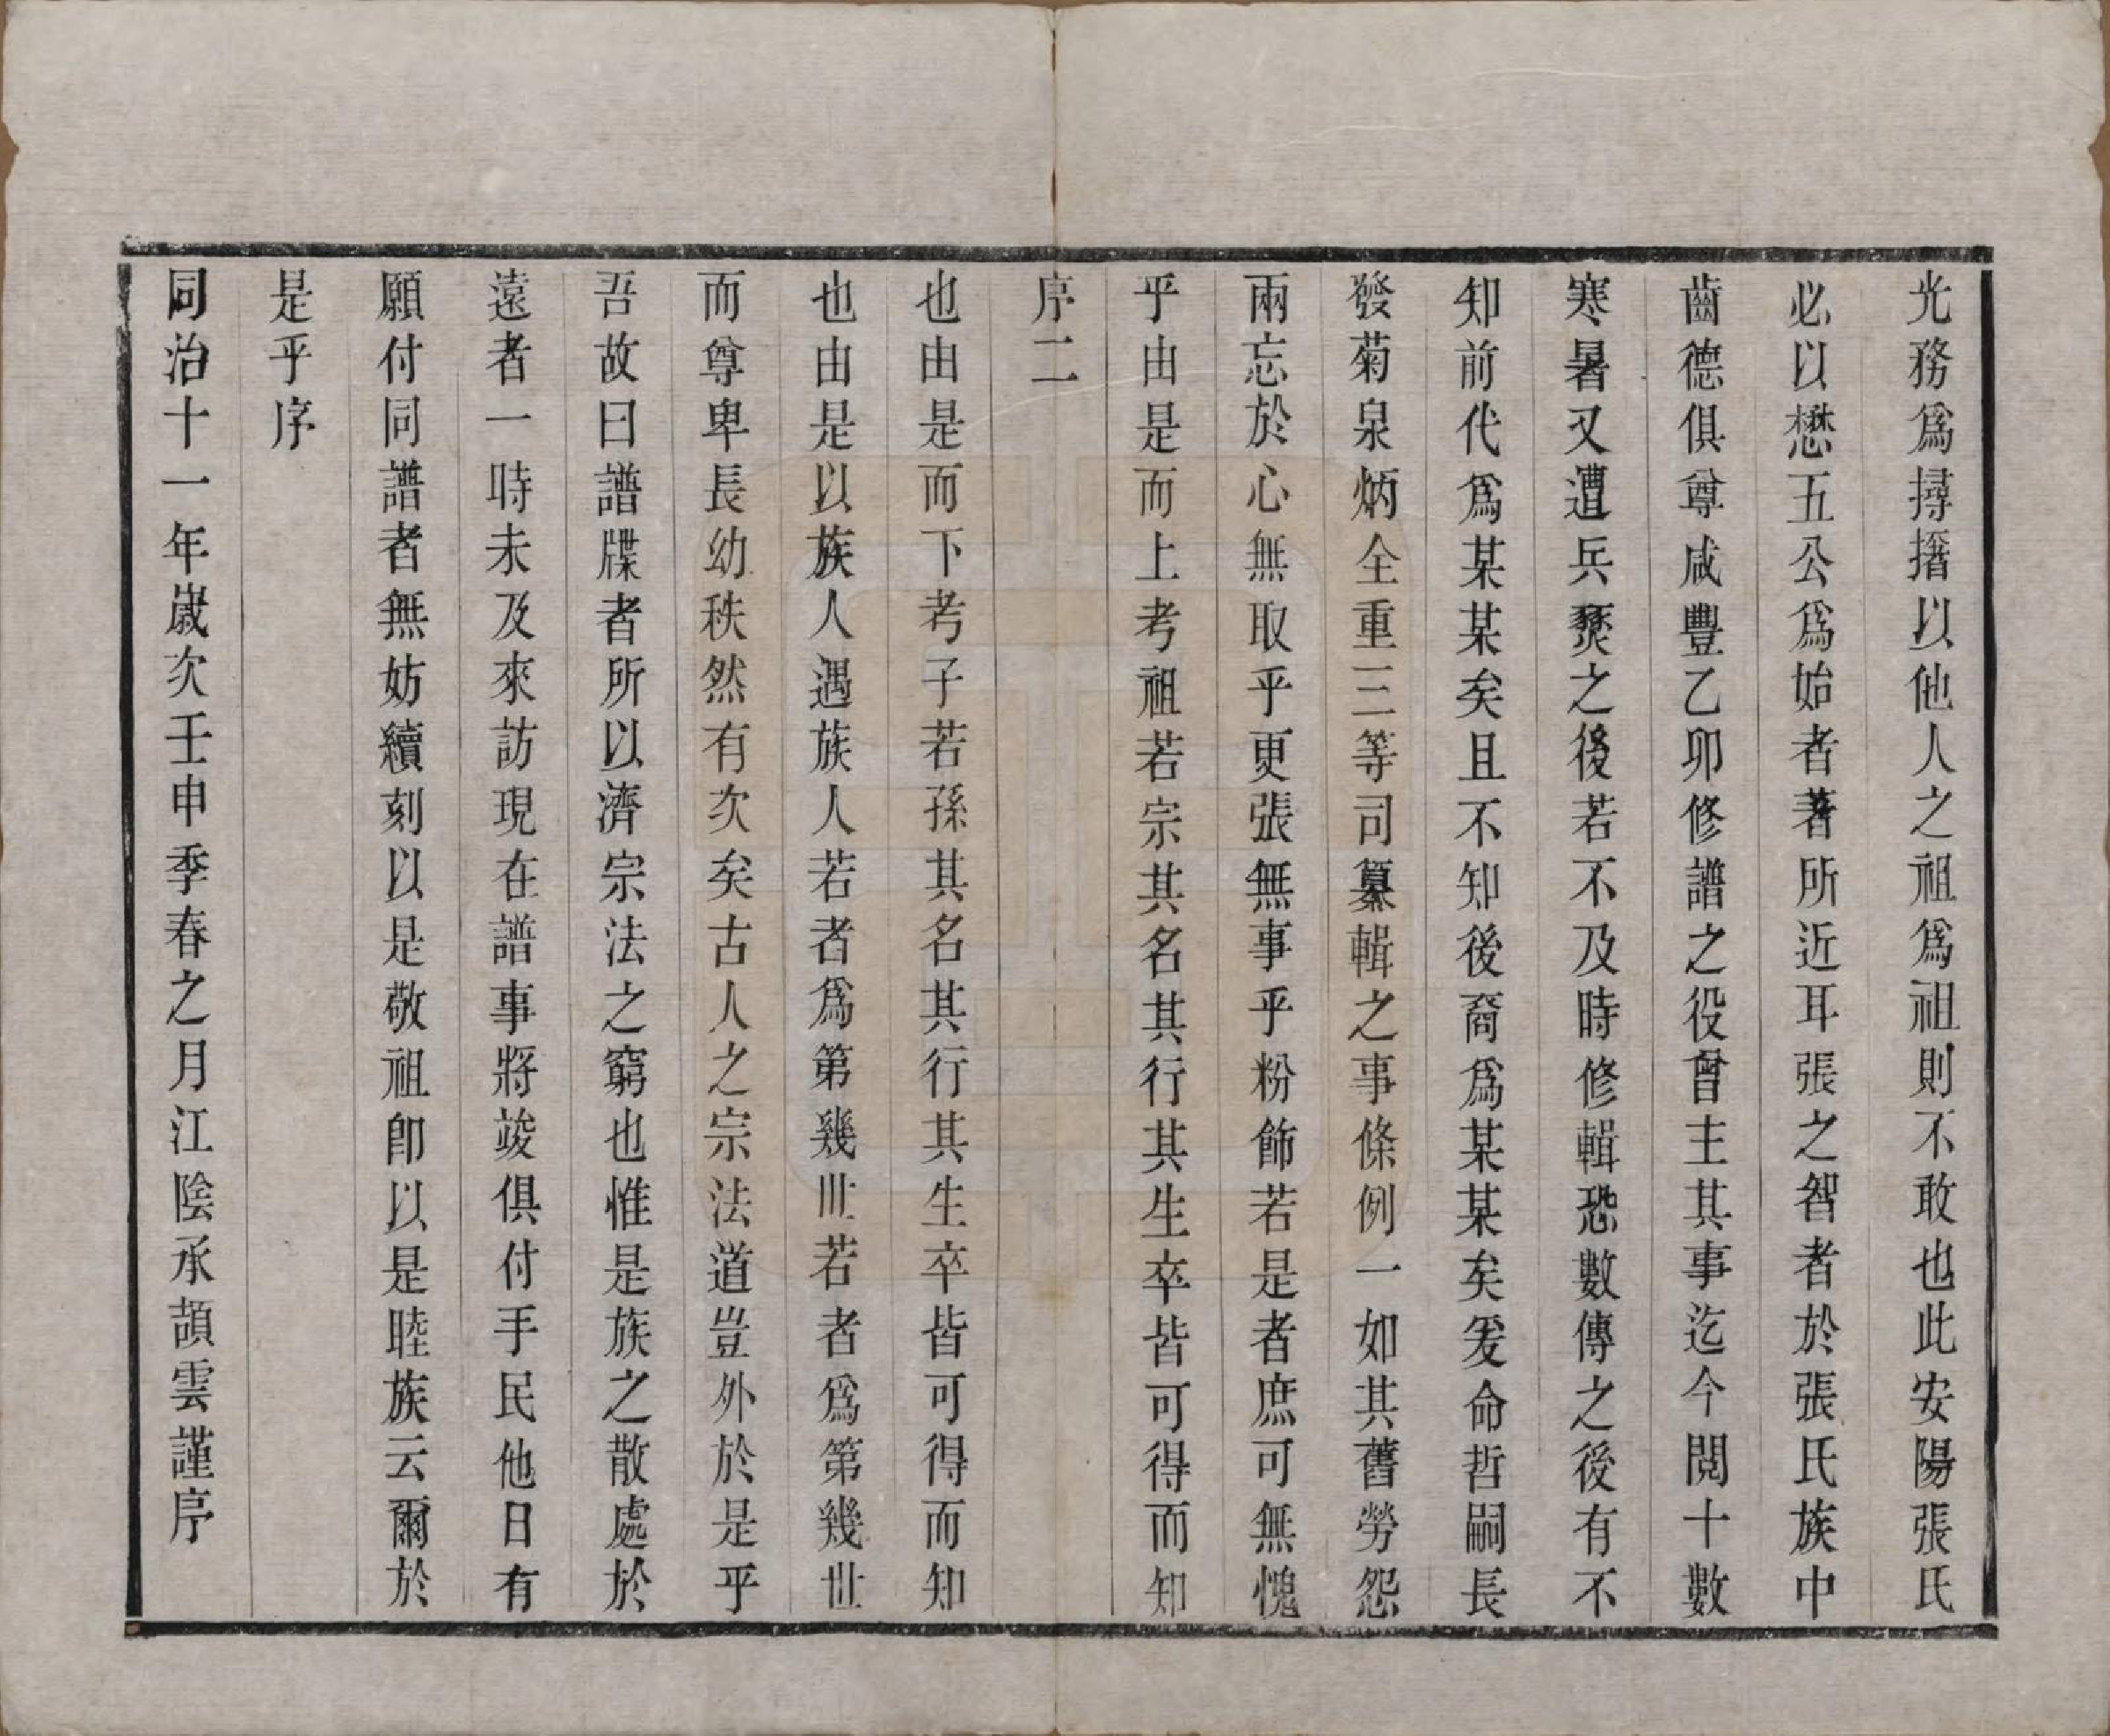 光務爲撏撦以他人之祖爲祖則不敢也此安陽張氏
必以懋五公爲始者著所近耳張之智者於張氏族中
齒德俱尊咸豐乙卯修譜之役曾主其事迄今閱十數
寒暑又遭兵燹之後若不及時修輯恐數傳之後有不
知前代爲某某矣且不知後裔爲某某矣爰命哲嗣長
發菊泉炳全重三等司纂輯之事條例一如其舊勞怨
兩忘於心無取乎更張無事乎粉飾若是者庶可無愧
乎由是而上考祖若宗其名其行其生卒皆可得而知
序二
也由是而下考子若孫其名其行其生卒皆可得而知
也由是以族人遇族人若者爲第幾世若者爲第幾世
而尊卑長幼秩然有次矣古人之宗法道豈外於是乎
吾故曰譜牒者所以濟宗法之窮也惟是族之散處於
遠者一時未及來訪現在譜事將竣俱付手民他日有
願付同譜者無妨續刻以是敬祖卽以是睦族云爾於
是乎序
同治十一年歲次壬申季春之月江陰承頡雲謹序